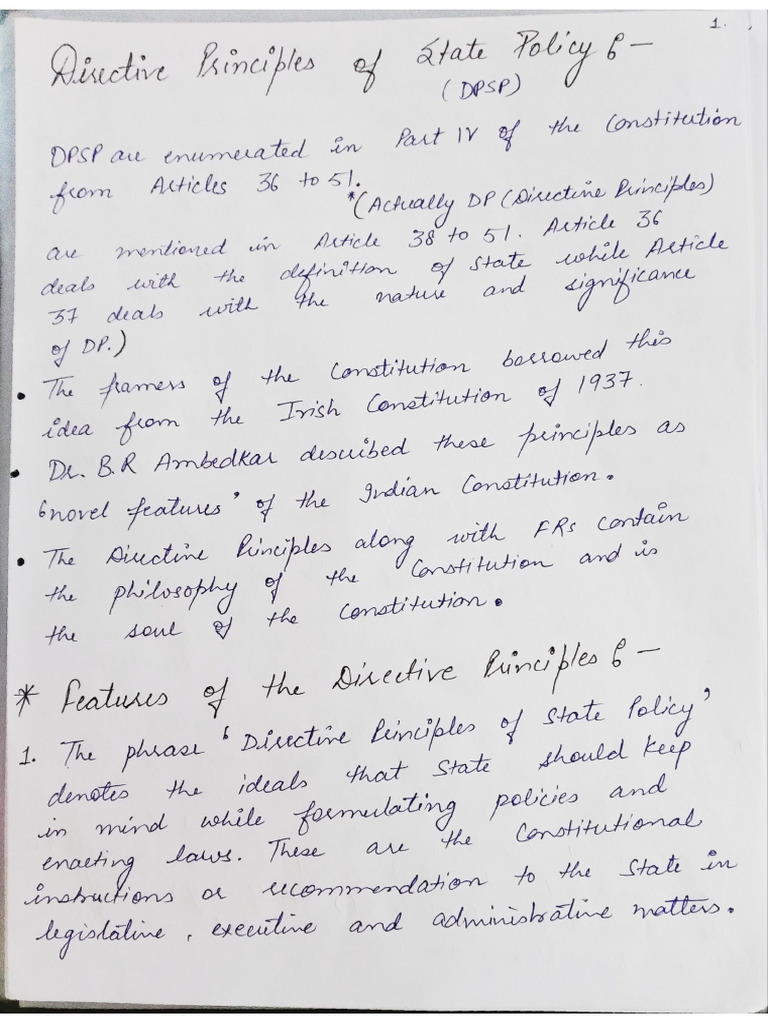 1.
Directive Principles of State Policy :-
(DPSP)
DPSP are enumerated in Part IV of the Constitution
from Articles 36 to 51.
*(Actually DP (Directive Principles)
are mentioned in Article 38 to 51. Article 36
deals with the definition of State while Article
37 deals with the nature and significance
of DP.)
• The framers of the Constitution borrowed this
idea from the Irish Constitution of 1937.
• Dr. B.R Ambedkar described these principles as
'novel features' of the Indian Constitution.
• The Directive Principles along with FRs contain
the philosophy of the Constitution and is
the soul of the Constitution.
* Features of the Directive Principles :-
1. The phrase 'Directive Principles of State Policy'
denotes the ideals that State should keep
in mind while formulating policies and
enacting laws. These are the Constitutional
instructions or recommendation to the State in
legislative, executive and administrative matters.